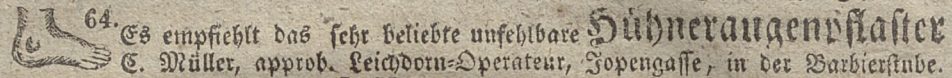 64. Es empfiehlt das sehr beliebte unfehlbare Hühneraugenpflaster
C. Müller, approb. Leichdorn=Operateur, Jopengasse, in der Barbierstube.